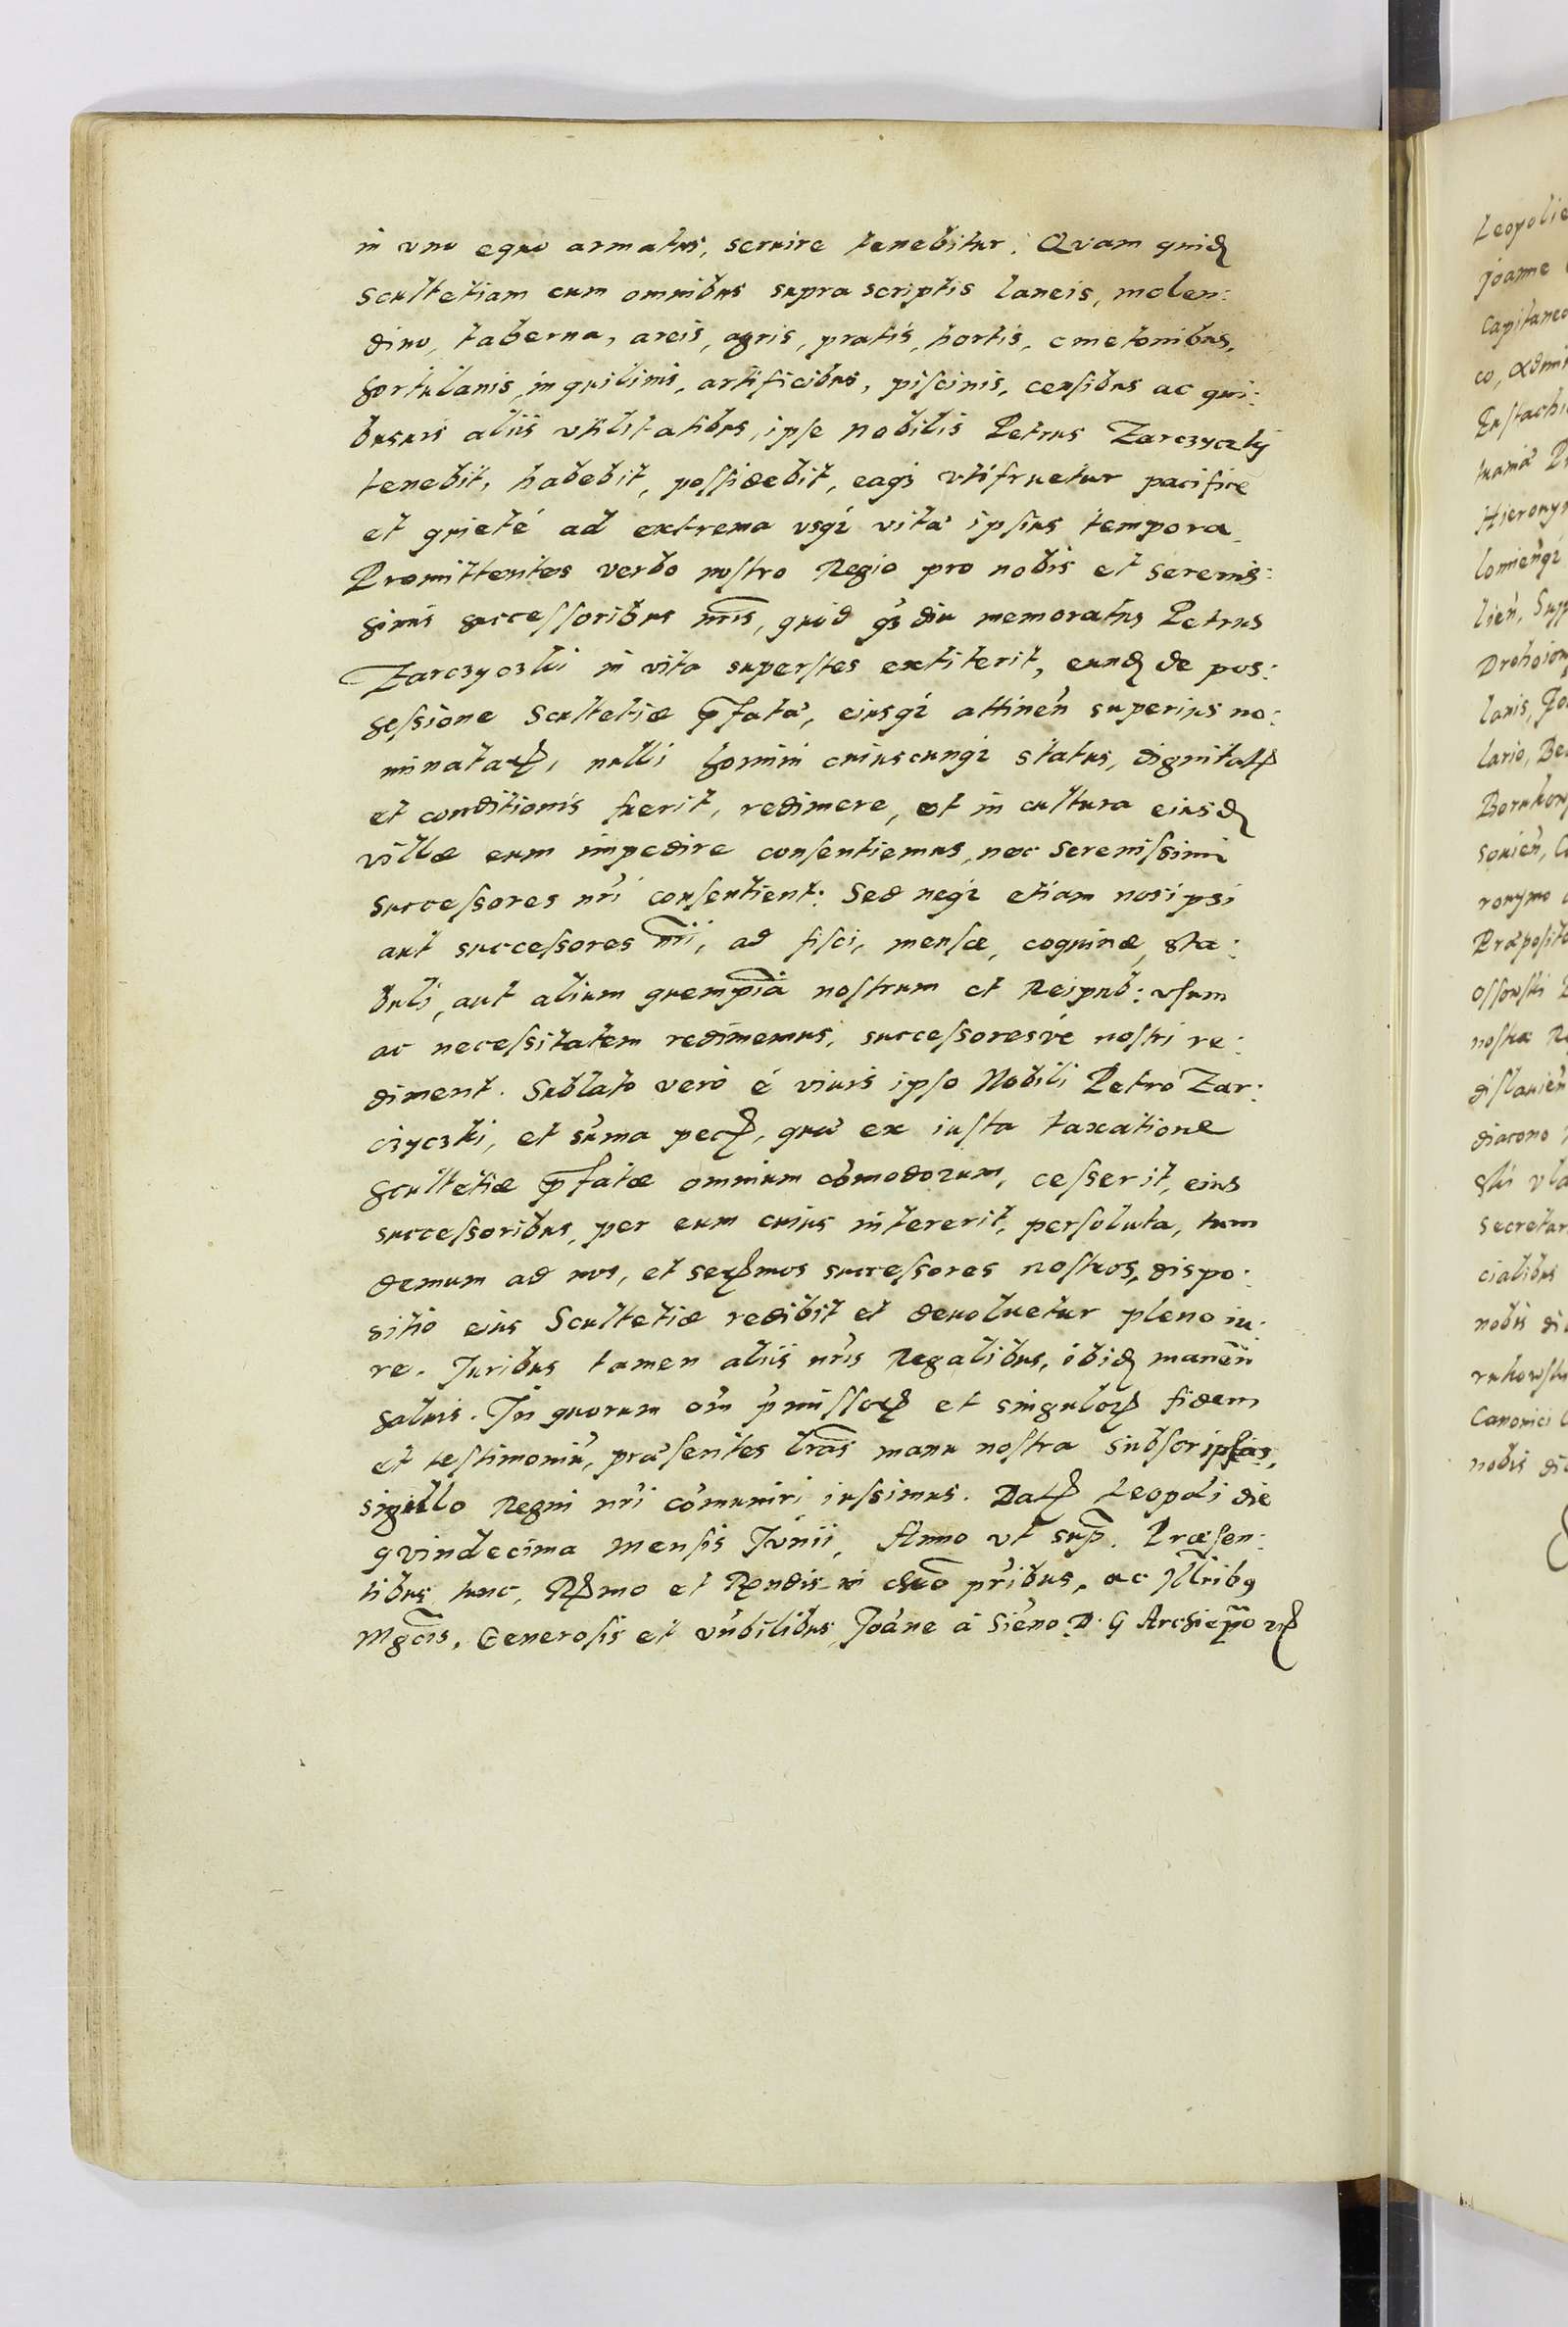 in vno equo armatus, seruire tenebitur. Quam quidꝫ
Scultetiam cum omnibus supra scriptis laneis, molen:
dino, taberna, areis, agris, pratis, hortis, cmetonibus,
hortulanis, inquilinis, artificibus, piſcinis, cenſibus ac qui:
busuis aliis vtilitatibus, ipſe Nobilis Petrus Zarczyczky
tenebit, habebit, poſſidebit, eaqꝫ vtifruetur pacifice
et quietè ad extrema vsqꝫ vitæ ipſius tempora
Promittentes verbo noſtro Regio pro nobis et Serenis:
simis succeſſoribus nr̃is, quod qꝫ diu memoratus Petrus
Zarczyczki in vita superſtes extiterit, eundꝫ de pos:
seſsione Scultetiæ p̃fatæ, eiusqꝫ attineñ superius no:
minataꝝ, nulli homini cuiuscunqꝫ status, dignitatꝭ
et conditionis fuerit, redimere, et in cultura eiusdꝫ
villæ eum impedire conſentiemus, nec Sereniſsimi
succeſsores nr̃i conſentient: Sed neqꝫ etiam nosipsi
aut succeſsores nr̃i, ad fiſci, menſæ, coquinæ, sta:
buli, aut alium quempiã noſtrum et Reipub: vſum
ac neceſsitatem redimemus, succeſsoresve noſtri re:
diment. Sublato verò è viuis ipſo Nobili Petro Zar:
czyczki, et sum̃a pecꝭ, quæ ex iuſta taxatione
scultetiæ p̃fatæ omnium com̃odorum, ceſserit, eius
succeſsoribus, per eum cuius intererit, perſoluta, tum
demum ad nos, et serꝭmos succeſsores noſtros, dispo:
sitio eius Scultetiæ redibit et deuoluetur pleno iu:
re. Juribus tamen aliis nr̃is Regalibus, ibidꝫ maneñ
saluis. In quorum om̃ p̃miſſoꝝ et singuloꝝ fidem
et teſtimoniũ, præſentes lr̃as manu noſtra subſcriptas,
sigillo Regni nr̃i com̃uniri iuſsimus. Datꝭ Leopoli die
qvindecima Menſis Junii, Anno vt sup̃. Præſen:
tibus tunc, Rꝭmo et Rẽndis in chr̃o pr̃ibus, ac Jll̃ribꝰ
Mgcis̃, Generoſis et Vñbilibus, Joañe à Sieno D: G Archiep̃o
Leopolie
Joanne
Capitaneo
nobis